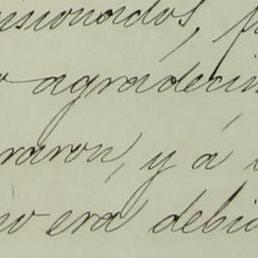 isionados, p
o agradecim
raron, y á
no era debid